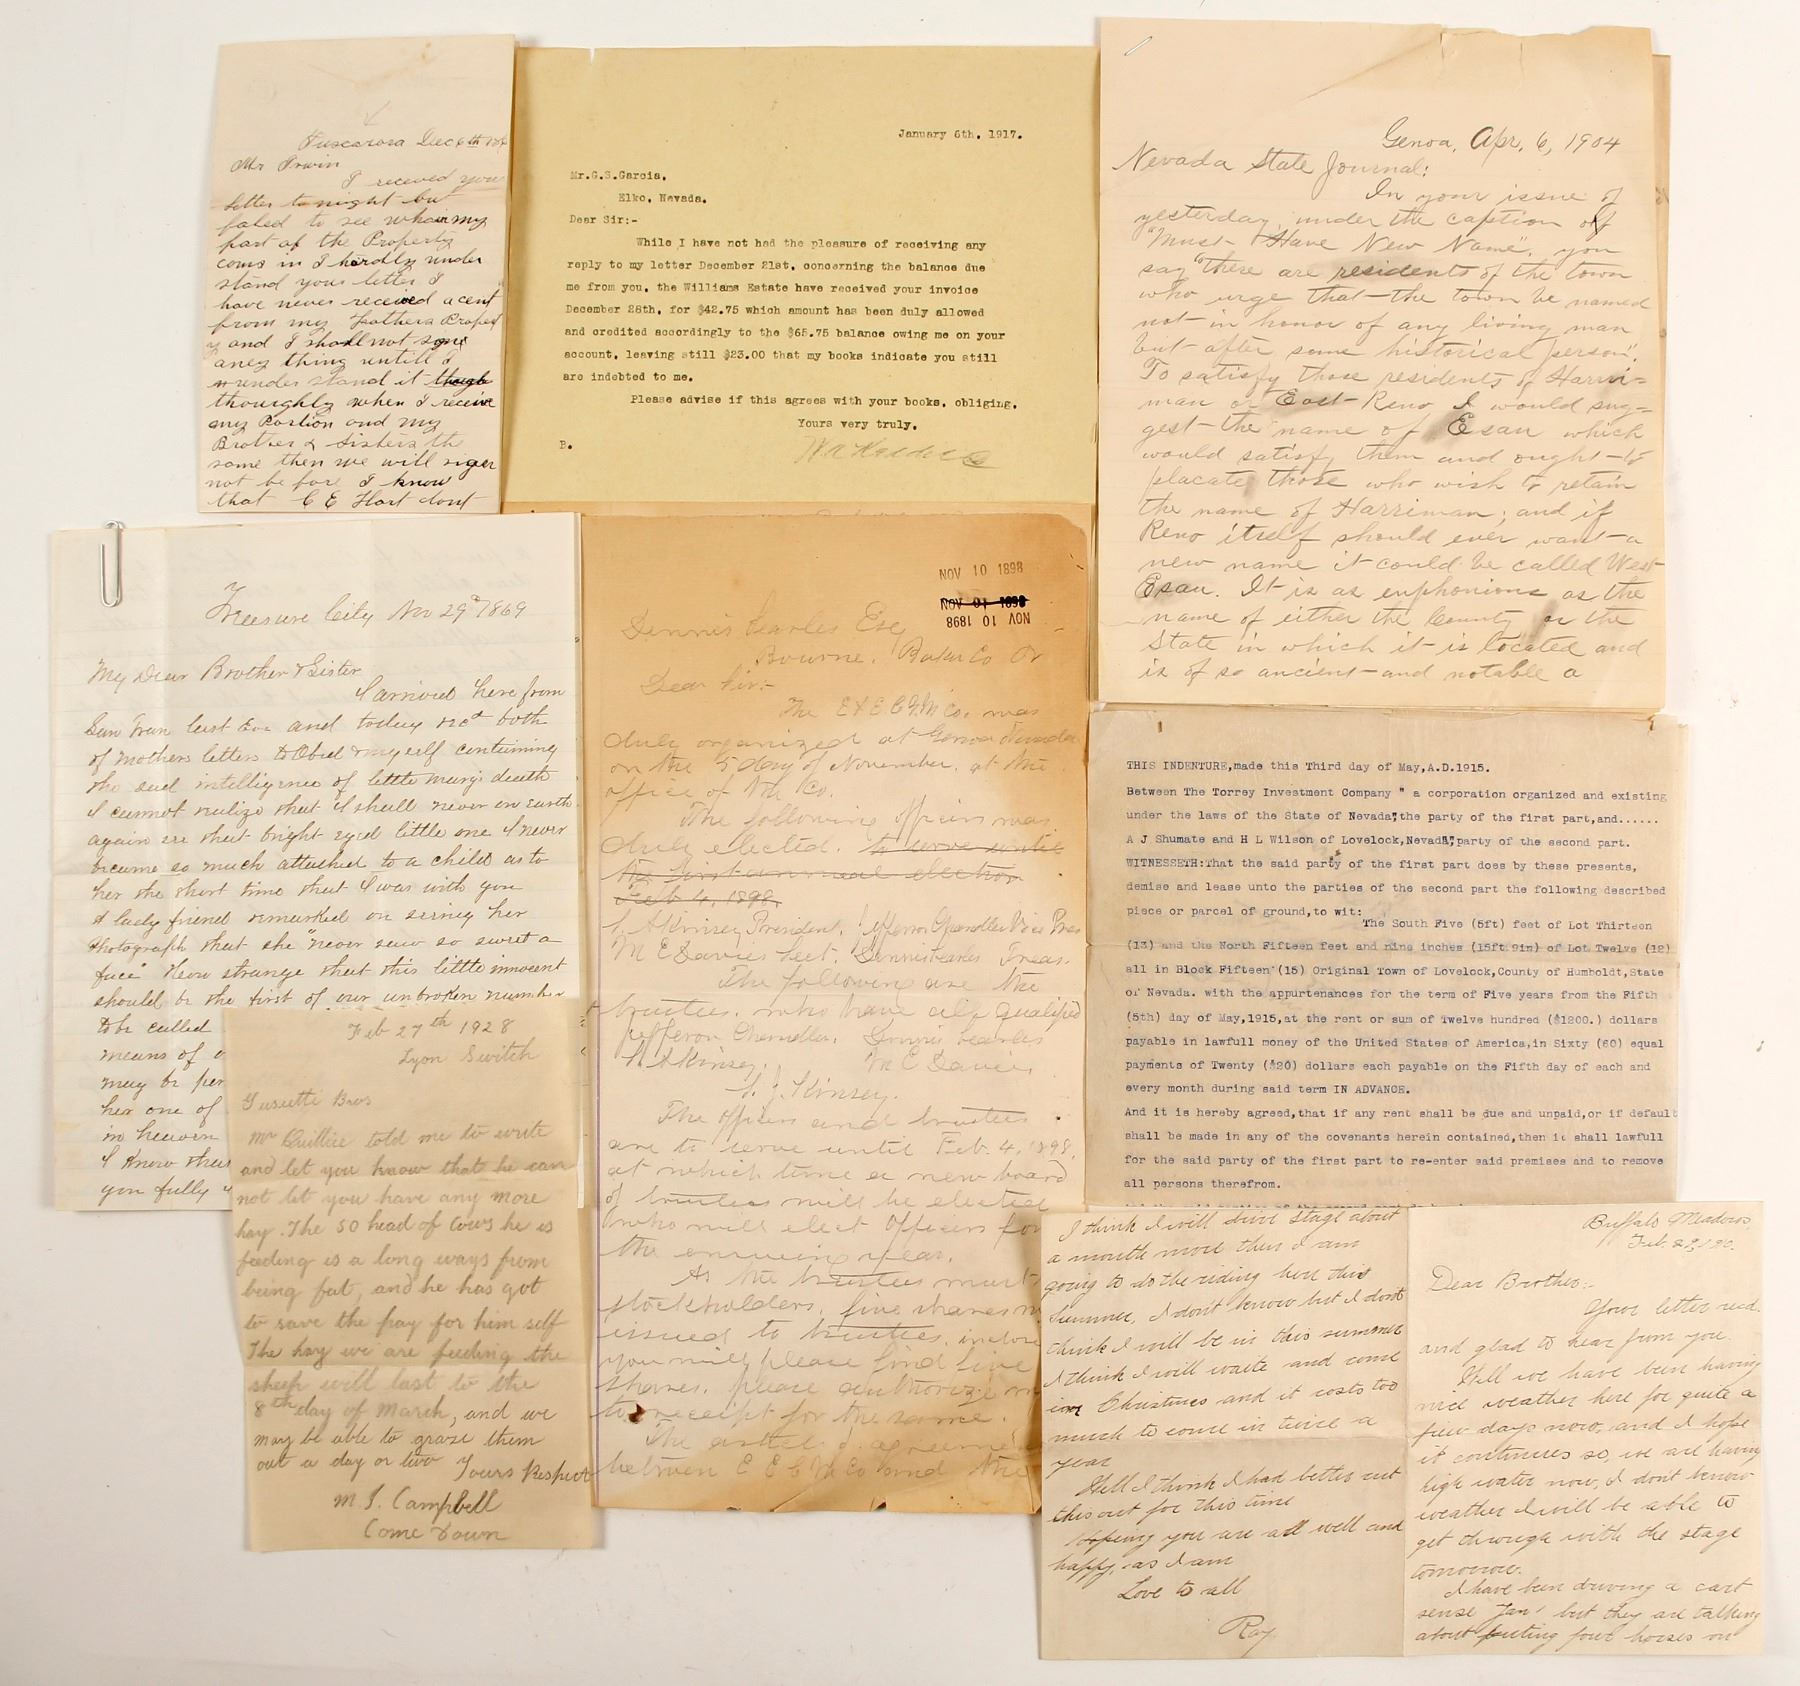 Tuscarora Dec 6th
Mr Irwin
I receved your
letter to night but
faled to see wha my
part of the Property
coms in I hardly under
stand your letter I
have never received a cent
from my Fathers Propert
y and I shall not sign
aney thing untill I
under stand it though
thoughly when I receive
my Portion and my
Brother & Sisters the
same then we will
not be fore I know
that C E Hart dont
January 6th. 1917.
Mr.G.S.Garcia.
Elko. Nevada.
Dear Sir:-
While I have not had the pleasure of receiving any
reply to my letter December 21st. concerning the balance due
me from you. the Williams Estate have received your invoice
December 28th. for $42.75 which amount has been duly allowed
and credited accordingly to the $65.75 balance owing me on your
account. leaving still $23.00 that my books indicate you still
are indebted to me.
Please advise if this agrees with your books. obliging.
Yours very truly.
B.
Genoa, Apr. 6, 1904
Nevada State Journal:
In your issue of
yesterday under the caption of
"Must Have New Name", you
say "there are residents of the town
who urge that the town be named
not in honor of any living man
but after some historical person".
To satisfy those residents of Harri=
man or East Reno I would sug=
gest the name of Esau which
would satisfy them and ought to
placate those who wish to retain
the name of Harriman; and if
Reno itself should ever want a
new name it could be called West
Esau. It is as euphonious as the
name of either the County or the
State in which it is located and
is of so ancient and notable a
Treasure City Nov 29th 1869
My Dear Brother & Sister
I arrived here from
San Fran last Eve and today recd both
of Mothers letters to Obed & myself containing
the sad intelligence of little Marys death
I cannot realize that I shall never on earth
again see that bright eyed little one I never
became so much attached to a child as to
her the short time that I was with you
A lady friend remarked on seeing her
Photograph that she "never saw so sweet a
face" How strange that this little innocent
should be the first of our unbroken number
to be called
means of
may be per
her one of
in heaven
I know that
you fully
NOV 10 1898
NOV 10 1898
NOV 10 1898
Dennis Searles Esq
Bourne. Baker Co Or
Dear Sir:-
The E & E C G M Co. was
duly organized at Genoa Nevada
on the 5 day of November. at the
office of the Co.
The following officers was
duly elected. to serve until
the first annual election
Feb 4. 1898.
S. A Kinsey President. Jefferson Chandler Vice Pres
M E Davies Sect. Dennis Searles Treas.
The following are the
trustees. who have all qualified
Jefferson Chandler. Dennis Searles
S. A Kinsey. M E Davies
S. J. Kinsey.
The officers and trustees
are to serve until Feb. 4. 1898.
at which time a new board
of trustees will be elected
who will elect Officers for
the ensuing year.
As the trustees must
stockholders. five shares
issued to trustees. inclose
you will please find five
shares. please authorize me
to receipt for the same.
The agreeme
between E E C M Co and the
THIS INDENTURE,made this Third day of May,A.D.1915.
Between The Torrey Investment Company " a corporation organized and existing
under the laws of the State of Nevada",the party of the first part,and......
A J Shumate and H L Wilson of Lovelock,Nevada,party of the second part.
WITNESSETH:That the said party of the first part does by these presents,
demise and lease unto the parties of the second part the following described
piece or parcel of ground,to wit:
The South Five (5ft) feet of Lot Thirteen
(13) and the North Fifteen feet and nine inches (15ft.9in) of Lot Twelve (12)
all in Block Fifteen (15) Original Town of Lovelock,County of Humboldt,State
of Nevada. with the appurtenances for the term of Five years from the Fifth
(5th) day of May,1915,at the rent or sum of Twelve hundred ($1200.) dollars
payable in lawfull money of the United States of America,in Sixty (60) equal
payments of Twenty ($20) dollars each payable on the Fifth day of each and
every month during said term IN ADVANCE.
And it is hereby agreed,that if any rent shall be due and unpaid,or if default
shall be made in any of the covenants herein contained,then it shall lawfull
for the said party of the first part to re-enter said premises and to remove
all persons therefrom.
Feb 27th 1928
Lyon Switch
Bros
Mr told me to write
and let you know that he can
not let you have any more
hay. The 50 head of Cows he is
feeding is a long ways from
being fat, and he has got
to save the hay for him self
The hay we are feeding the
sheep will last to the
8th day of March, and we
may be able to graze them
out a day or two Yours Respect
M. S. Campbell
Come Down
I think I will drive stage about
a month more then I am
going to do the riding here this
Summer, I don't know but I dont
think I will be in this summer
I think I will waite and come
in Christmas and it costs too
much to come in twice a
year
Well I think I had better cut
this out for this time
Hoping you are all well and
happy, as I am
Love to all
Ray
Buffalo Meadows
Feb. 29,
Dear Brother:-
Your letter recd.
and glad to hear from you.
Well we have been having
nice weather here for quite a
few days now, and I hope
it continues so, we are having
high water now, I dont know
weather I will be able to
get through with the stage
tomorrow.
I have been driving a cart
sense Jan' but they are talking
about puting four horses on